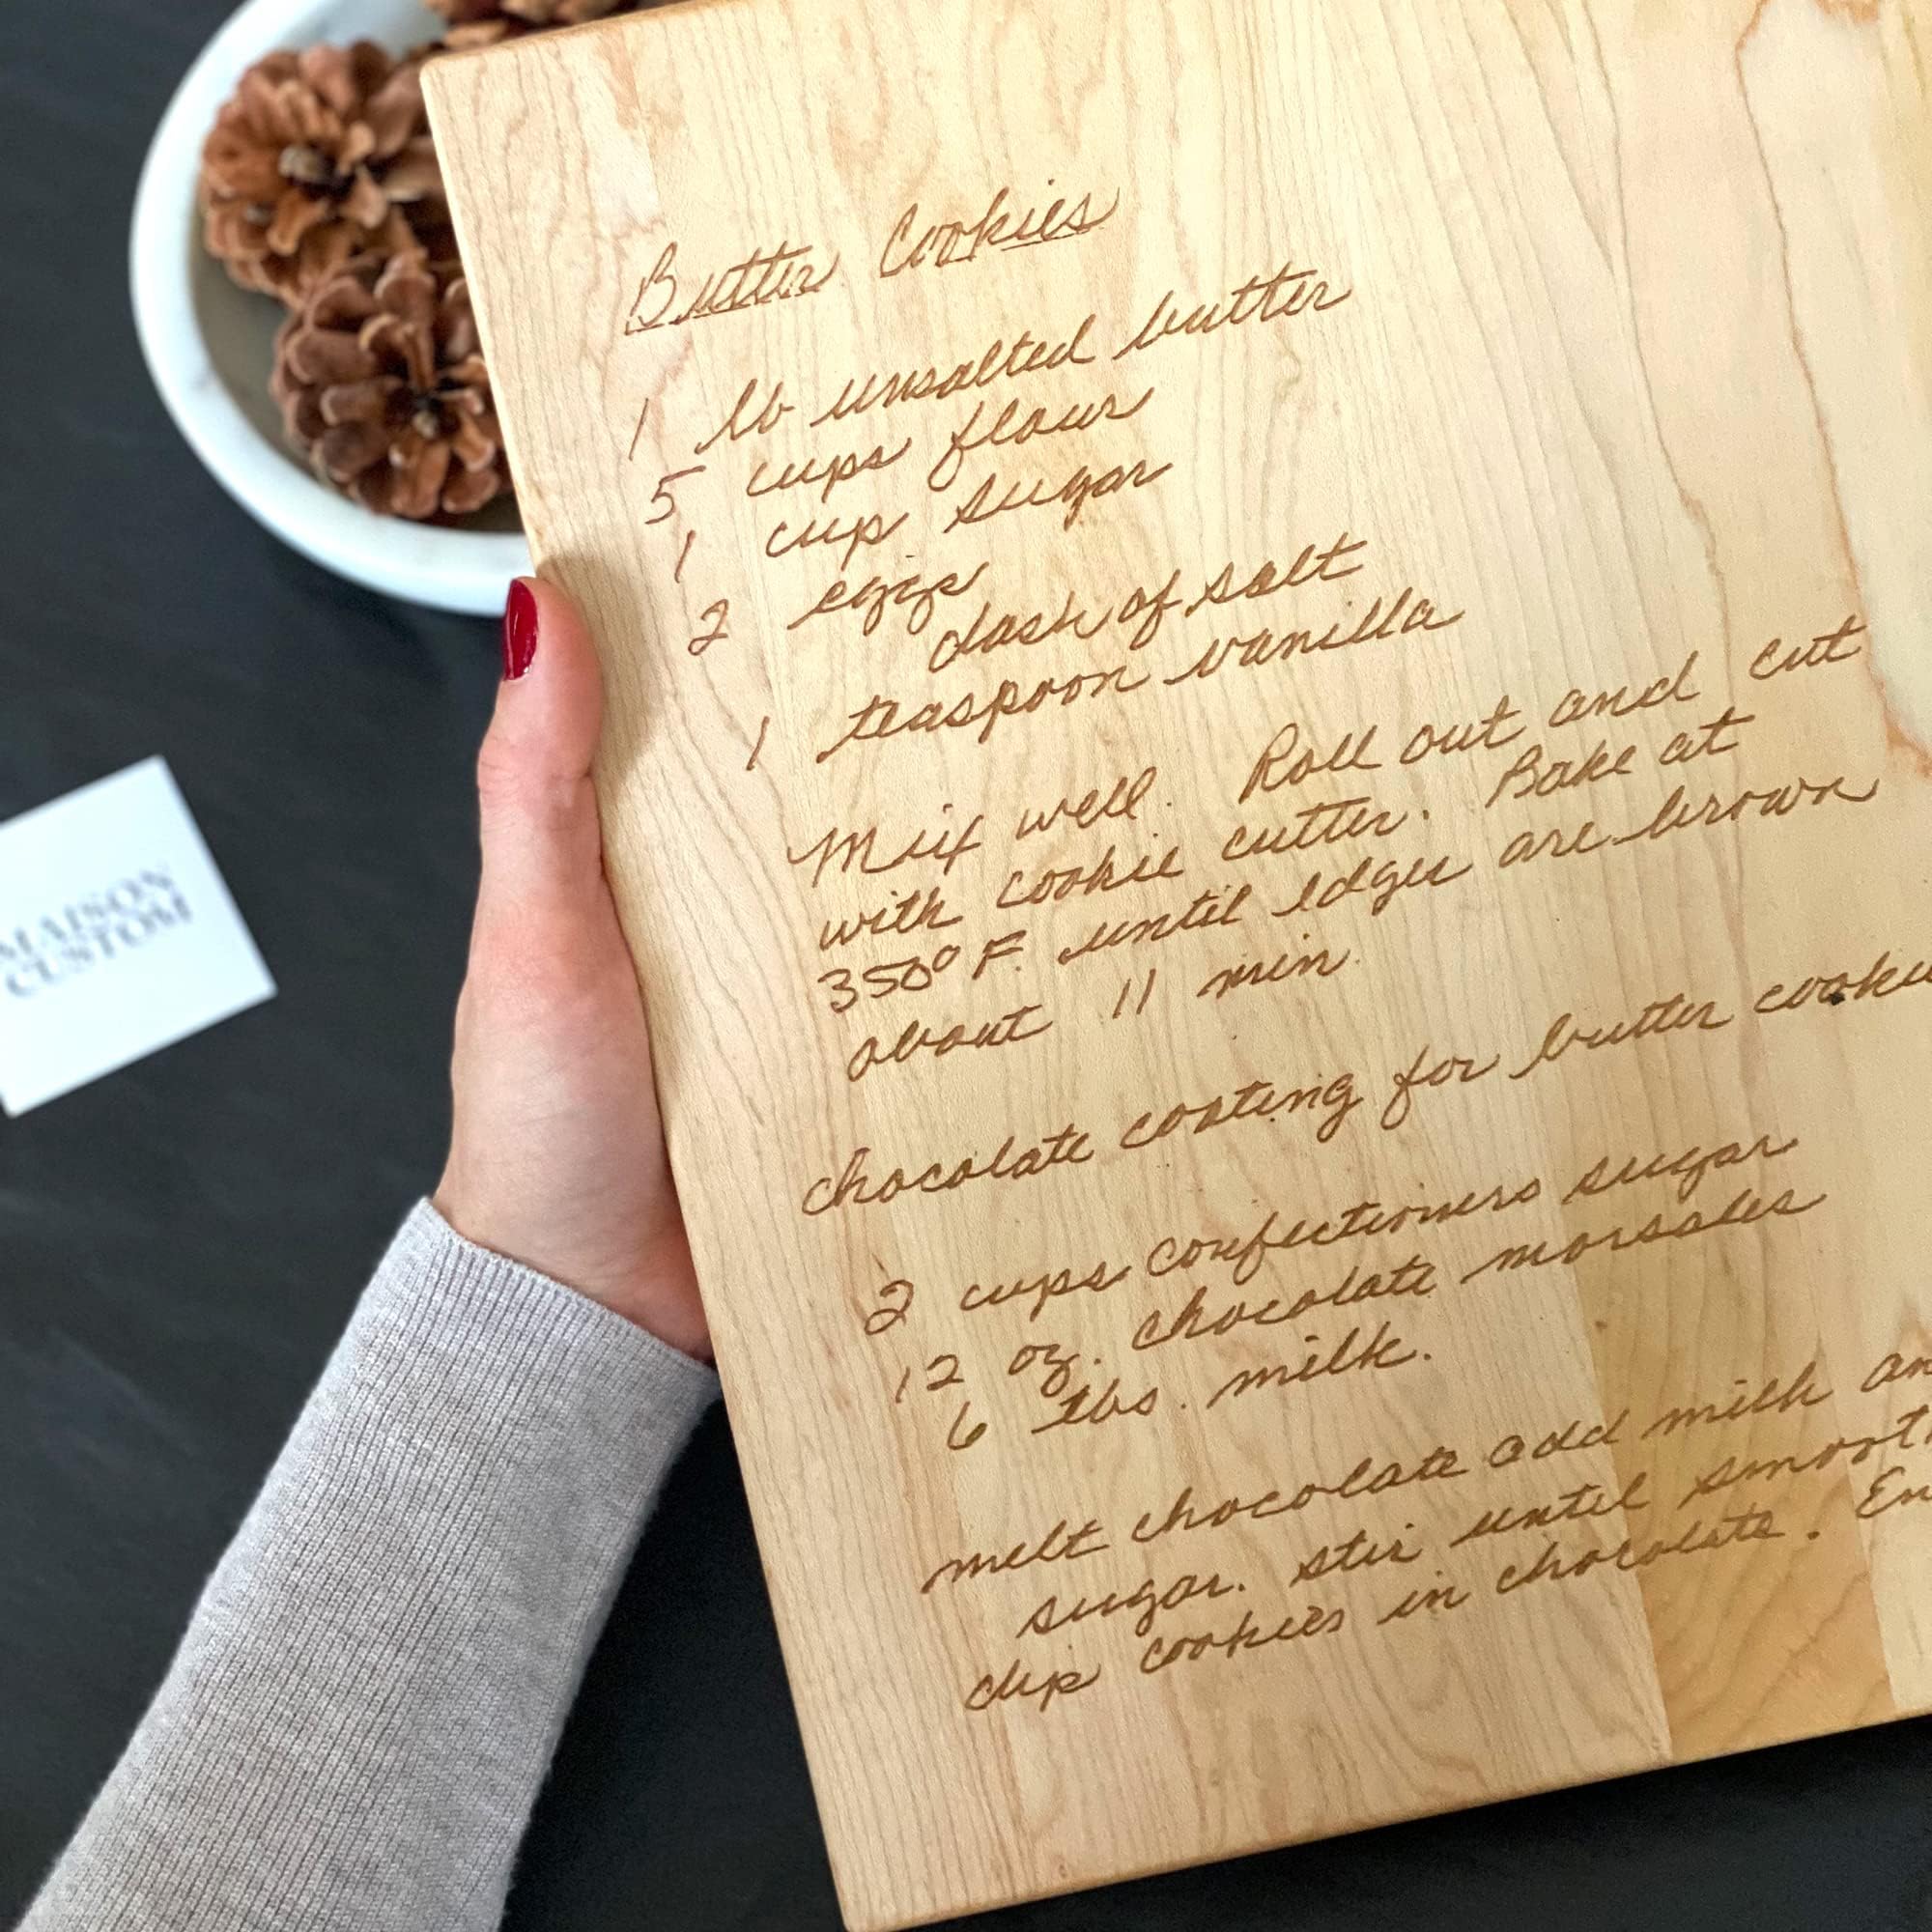 Butter Cookies
1 lb unsalted butter
5 cups flour
1 cup sugar
2 eggs
dash of salt
1 teaspoon vanilla
Mix well. Roll out and cut
with cookie cutter. Bake at
350° F. until edges are brown
about 11 min.
chocolate coating for butter cookie
2 cups confectioners sugar
12 oz. chocolate morsales
6 tbs. milk.
melt chocolate add milk an
sugar. stir until smooth
dip cookies in chocolate. En
MAISON
CUSTOM